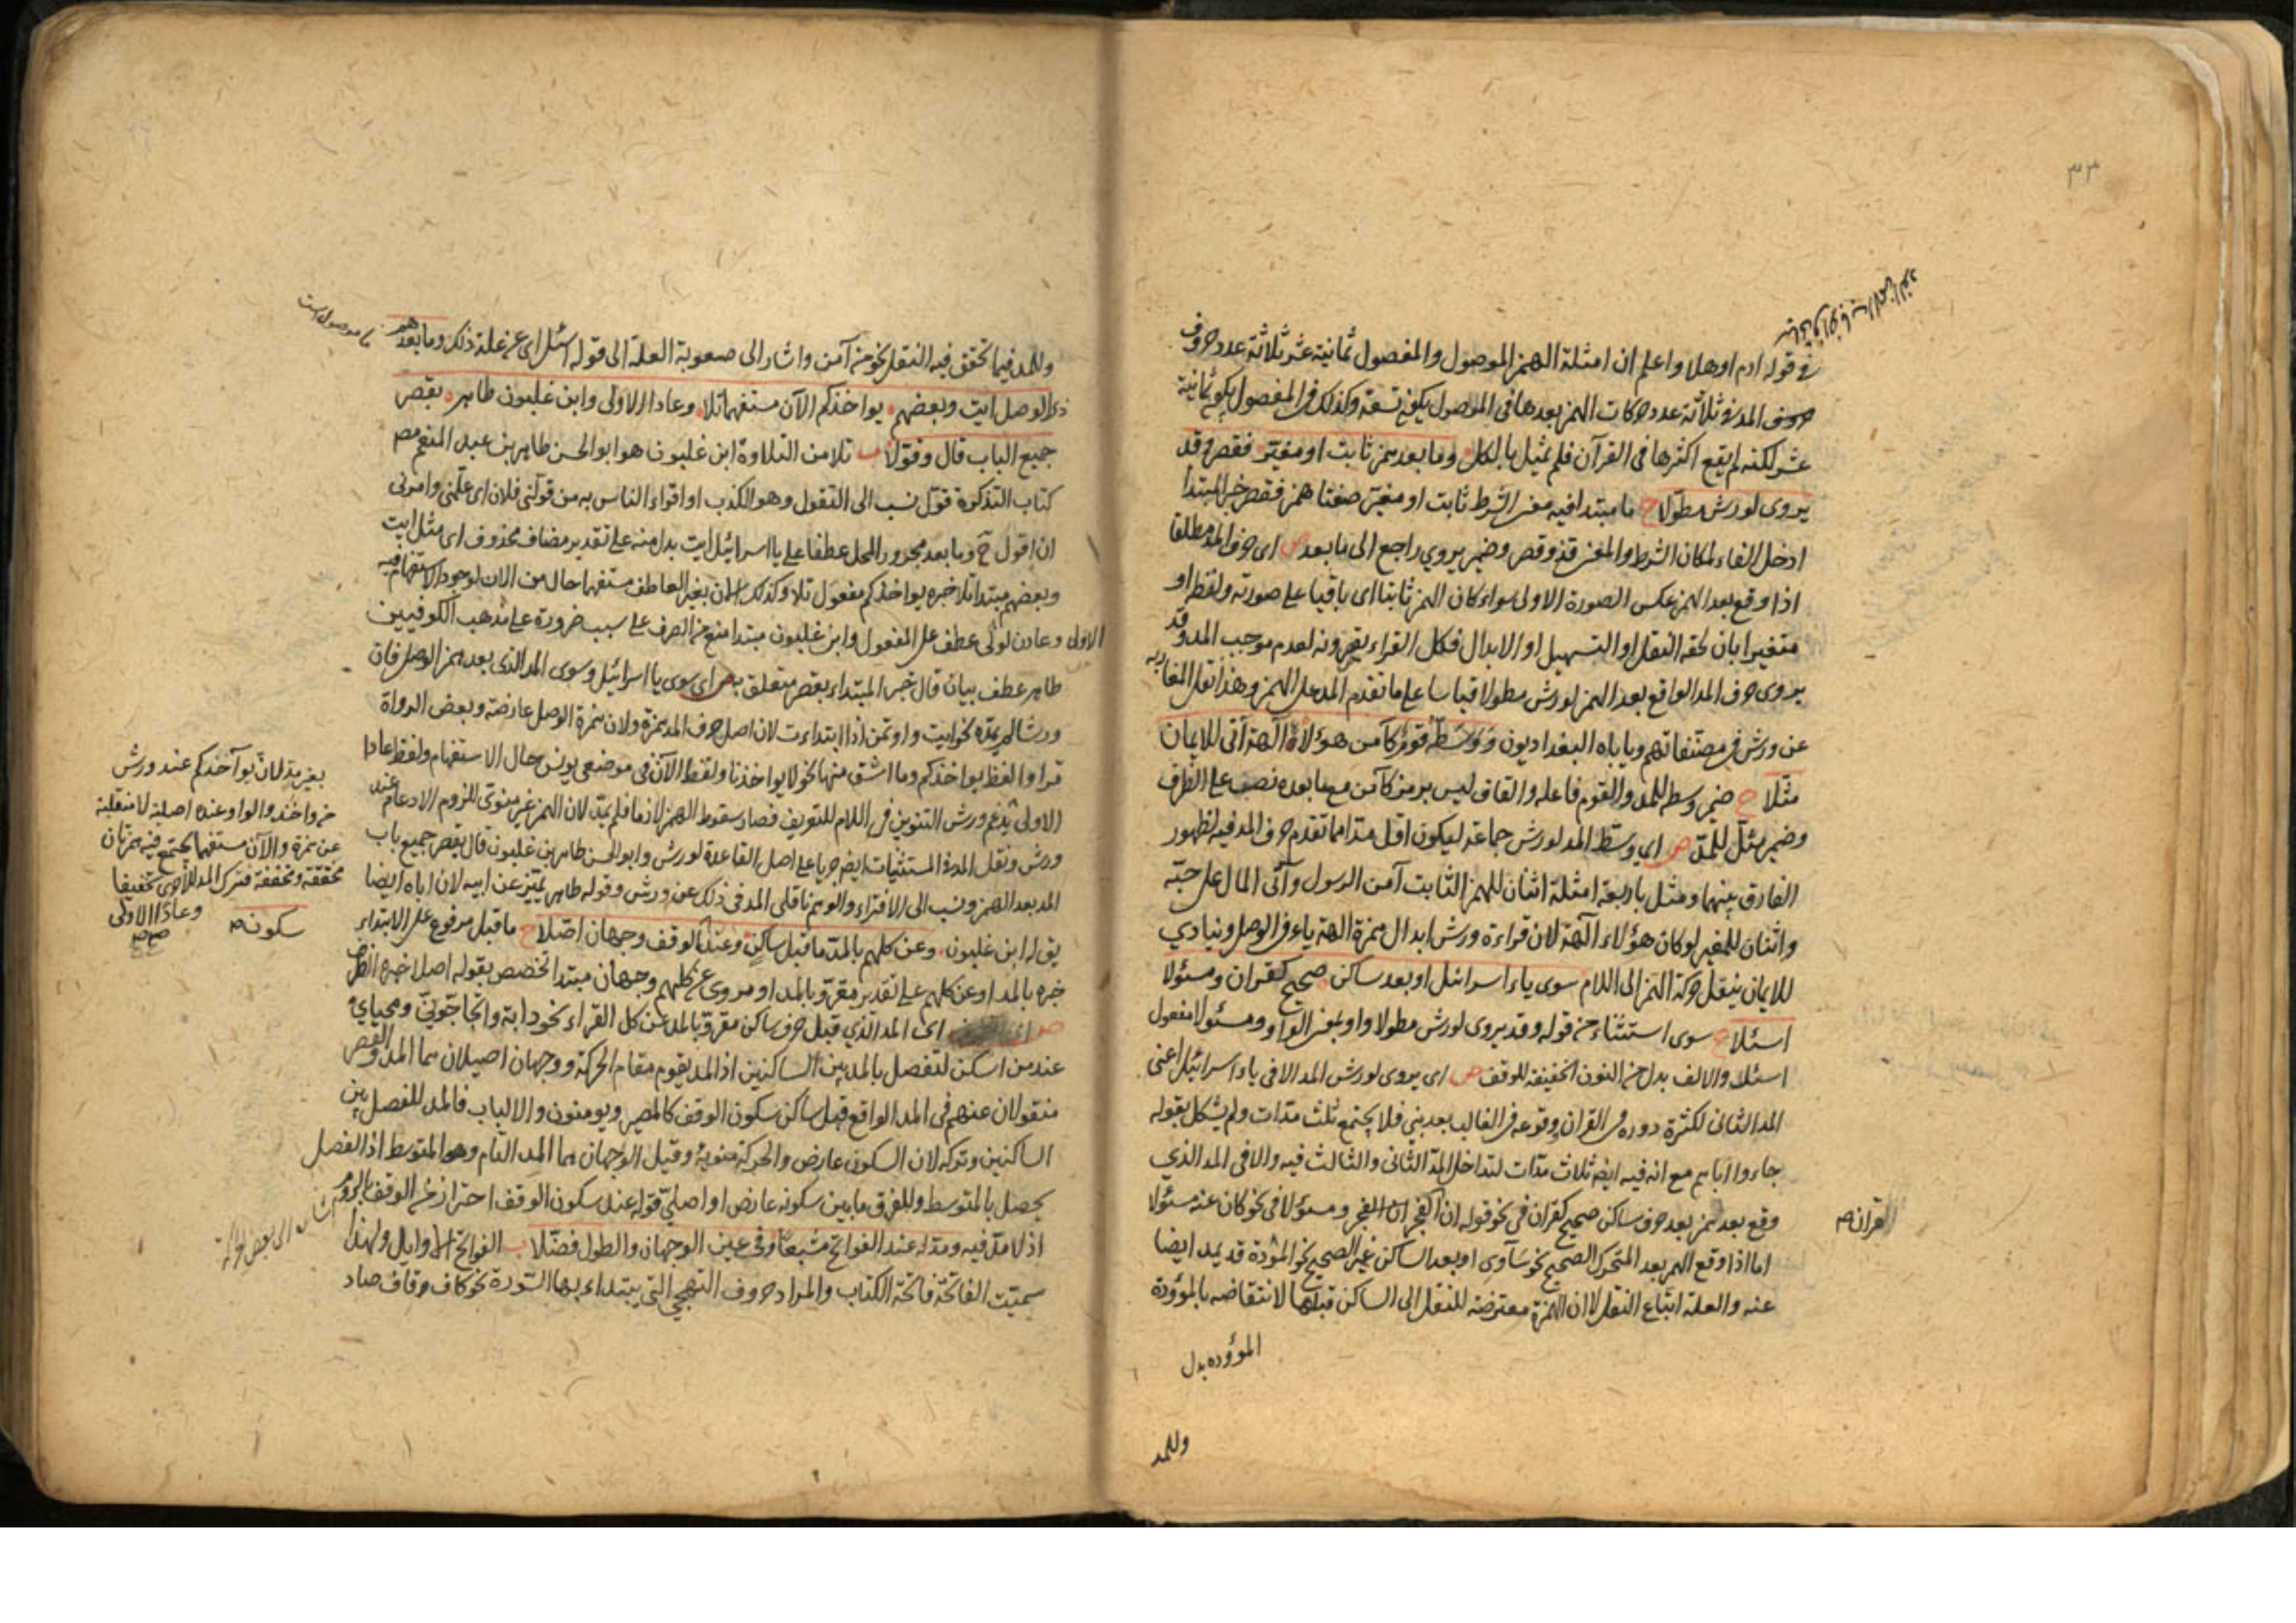 ٣٣
في قوله ادم اوهلا واعلم ان امثلة الهمز الموصول والمفصول ثمانية عشر ثلاثة عدد حروف
حروف المد في ثلاثة عدد حركات الهمز بعدها في الموصول يكون تسعة وكذلك في المفصول يكون ثمانية
عشر لكنه لم يقع اكثرها في القرآن فلم يمثل بالكل وما بعد همز ثابت او مغير فقصر وقد
يروى لورش مطولا ح ما مبتدا فيه معنى الشرط ثابت او مغير صفتا همز فقصر خبر المبتدا
ادخل الفاء لمكان الشرط والمعنى فذو قصر وضمير يروي راجع الى ما بعد ص اى حرف المد مطلقا
اذا وقع بعد الهمز عكس الصورة الاولى سواء كان الهمز ثابتا اى باقيا على صورته ولفظه او
متغيرا بان لحقه النقل او التسهيل او الابدال فكل القراء يقصرونه لعدم موجب المد وقد
يروى حرف المد الواقع بعد الهمز لورش مطولا قياسا على ما تقدم المد على الهمز وهذا نقل المغاربه
عن ورش في مصنفاتهم وياباه البغداديون ووسطه قوم كآمن هؤلاء آلهة آتى للايمان
مثلا ح ضمير وسطه للمد والقوم فاعله والقاف ليس برمز كآمن مع ما بعده نصب على الظرف
وضمير مثل للمد ص اى وسط المد لورش جماعة ليكون اقل مدا مما تقدم حرف المد فيه لظهور
الفارق بينهما ومثل باربعة امثلة اثنان للهمز الثابت آمن الرسول وآتى المال على حبه
واثنان للمغير لوكان هؤلاء آلهة لان قراءة ورش ابدال همزة آلهة ياء في الوصل وينادي
للايمان بنقل حركة الهمز الى اللام سوى ياء اسرائيل او بعد ساكن صحيح كقران ومسئولا
اسئلا ح سوى استثناء من قوله وقد يروى لورش مطولا واو بمعنى الواو ومسئولا مفعول
اسئلا والالف بدل من النون الخفيفة للوقف ص اى يروى لورش المد الا في ياء اسرائيل اعنى
المد الثانى لكثرة دوره في القران ووقوعه في الغالب بعد بني فلا يجتمع ثلث مدات ولم يشكل بقوله
جاءوا اباهم مع انه فيه ايضا ثلاث مدات لتداخل المد الثانى والثالث فيه والا في المد الذي
وقع بعد همز بعد حرف ساكن صحيح كقران في نحو قوله ان قران الفجر ومسئولا في نحو كان عنه مسئولا
القران
اما اذا وقع الهمز بعد المتحرك الصحيح نحو سآوى او بعد الساكن غير الصحيح نحو المؤدة قد يمد ايضا
عنه والعلة اتباع النقل لا ان الهمزة معترضة للنقل الى الساكن قبلها لانتقاضه بالموؤدة
الموؤده بدل
وللمد
وللمد فيما تحقق فيه النقل نحو من آمن واشار الى صعوبة العلة الى قوله اسئلا اى عن علة ذلك وما بعد همز
م موصول است
ذى الوصل ايت وبعضهم يواخذكم الآن مستفهما تلا وعادا الاولى وابن غلبون طاهر بقصر
جميع الباب قال وقولا ب تلا من التلاوة ابن غلبون هو ابو الحسن طاهر بن عبد المنعم مصـ
كتاب التذكرة قول نسب الى التقول وهو الكذب او اقراء الناس به من قولنى فلان اى علمنى وامرنى
ان اقول ح وما بعد مجرور المحل عطفا على يا اسرائيل ايت بدل منه على تقدير مضاف محذوف اى مثل ايت
وبعضهم مبتدا تلا خبره يواخذكم مفعول تلا وكذلك الان بغير العاطف مستفهما حال من الان لوجود الاستفهام فيه
الاولى وعادن لولى عطف على المفعول وابن غلبون مبتدا منع من الصرف على سبب ضرورة على مذهب الكوفيين
طاهر عطف بيان قال خبر المبتداء بقصر متعلق به ص اى سوى يا اسرائيل وسوى المد الذى بعد همز الوصل فان
ورشا لم يمده نحو ايت واوتمن اذا ابتداءت لان اصل حرف المد همزة ولان همزة الوصل عارضة وبعض الرواة
قراوا لفظ يواخذكم وما اشتق منها نحو لا يواخذنا ولفظ الآن في موضعى يونس حال الاستفهام ولفظ عادا
الاولى يدغم ورش التنوين في اللام للتعريف فصار سقوط الهمز لازما فلم يمد لان الهمز غير منوى للزوم الادعام عند
ورش ونقل المد في المستثنيات ايضا جريا على اصل القاعدة لورش وابو الحسن طاهر بن غلبون قال بقصر جميع باب
المد بعد الهمز ونسب الى الافتراء والوهم ناقلى المد في ذلك عن ورش وقوله طاهر يميز عن ابيه لان اباه ايضا
يق له ابن غلبون وعن كلهم بالمد ما قبل ساكن وعند الوقف وجهان اصلا ح ما قبل مرفوع على الابتداء
خبره بالمد او عن كلهم على تقدير مقرو بالمد او مروى عن كلهم وجهان مبتدا تخصص بقوله اصلا خبره الظرف
ص اى المد الذي قبل حرف ساكن مقرو بالمد عن كل القراء نحو دابة واتحاجونى ومحياي
عند من اسكن لتفصل بالمد بين الساكنين اذ المد يقوم مقام الحركة ووجهان اصيلان هما المد والقصر
منقولان عنهم في المد الواقع قبل ساكن سكون الوقف كالمصير ويومنون والالباب فالمد للفصل بين
الساكنين وتركه لان السكون عارض والحركة منوية وقيل الوجهان هما المد التام وهو المتوسط اذ الفصل
يحصل بالمتوسط وللفرق ما بين سكونه عارض او اصلى قوله عند سكون الوقف احتراز عن الوقف بالروم
اذ لا مد فيه ومد له عند الفواتح مشبعا وفي عين الوجهان والطول فضلا ب الفواتح الاوايل ولهذا
سميت الفاتحة فاتحة الكتاب والمراد حروف التهجي التى يبتداء بها السورة نحو كاف وقاف صاد
بغير مد لان يوآخذكم عند ورش
من واخذ والواو عنده اصلية لا منقلبة
عن همزة والآن مستفهما يجتمع فيه همزتان
محققة ومخففة فترك المد للاخرى تخفيفا
وعادا الاولى
سكونه